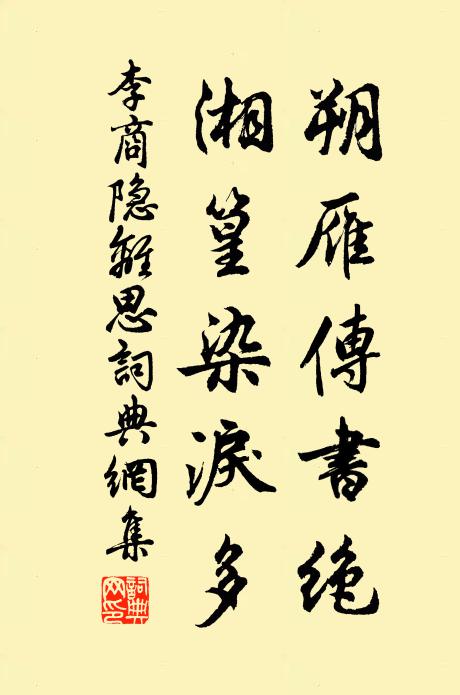 朔雁傳書絶
湘篁染淚多
李商隐離思詞典網集
詞典网印